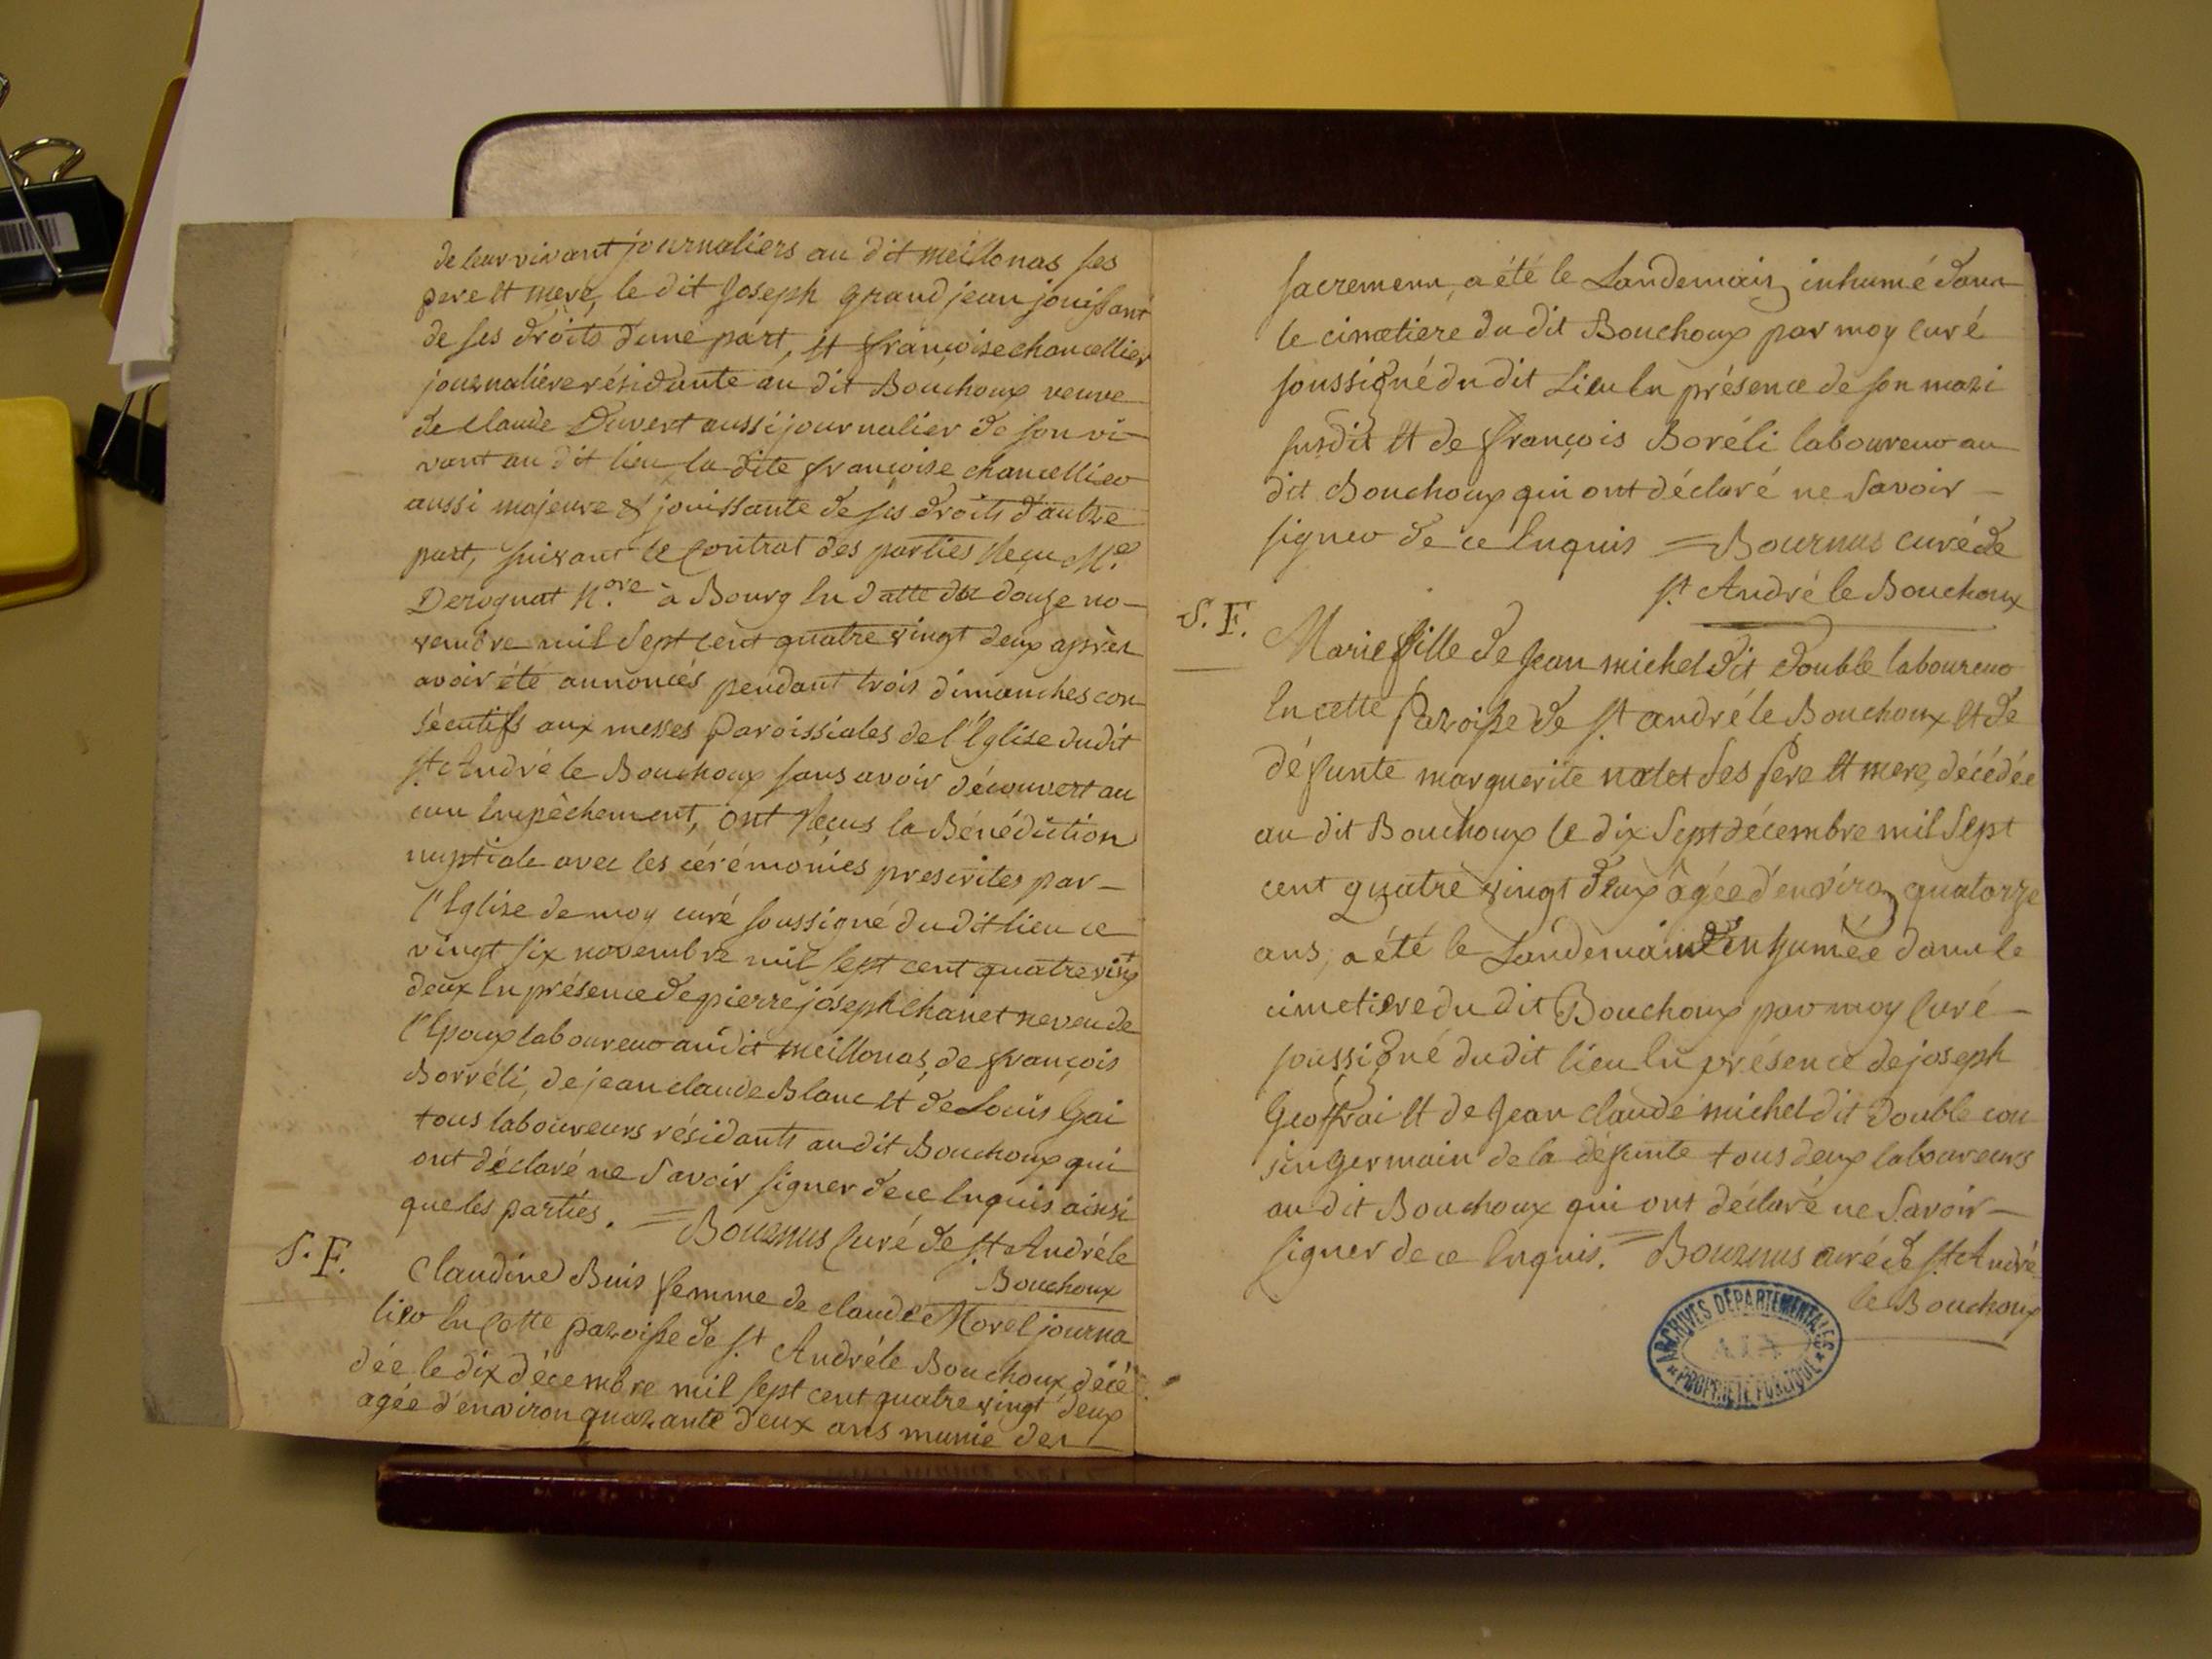 de leur vivant journaliers au dit meillonas ses
pere et mere, le dit Joseph grand jean jouissant
de ses droits d'une part, et françoise chancellier
journaliere résidante au dit Bouchoux veuve
de Claude Duvert aussi journalier de son vi-
vant au dit lieu la dite françoise chancellier
aussi majeure & jouissante de ses droits d'autre
part, suivant le Contrat des parties Reçu Me
Derognat N.ore à Bourg en datte du douze no-
vembre mil sept cent quatre vingt deux après
avoir été annoncés pendant trois dimanches con-
sécutifs aux messes Paroissiales de l'Eglise du dit
St André le Bouchoux sans avoir découvert au
cun Empêchement, ont Reçus la Bénédiction
nuptiale avec les cérémonies prescrites par-
l'Eglise de moy curé soussigné du dit lieu ce
vingt six novembre mil sept cent quatre vingt
deux En présence de pierre joseph Chanet neveu de
l'Epoux laboureur au dit meillonas, de françois
Borréli, de jean claude Blanc et de Louis Gai
tous laboureurs résidants au dit Bouchoux qui
ont déclaré ne Savoir signer de ce Enquis ainsi
que les parties. = Bournus Curé de St André le
Bouchoux
S. F.
Claudine Buis femme de claude Morel journa
lier En Cette paroisse de St André le Bouchoux, décé
dée le dix décembre mil sept cent quatre vingt deux
agée d'environ quarante deux ans munie des
sacremens, a été le Landemain inhumé dans
le cimetiere du dit Bouchoux par moy curé
soussigné du dit Lieu En présence de son mari
susdit et de françois Boréli laboureur au
dit Bouchoux qui ont déclaré ne Savoir-
signer de ce Enquis = Bournus curé de
St André le Bouchoux
S. F.
Marie fille de Jean michel dit double laboureur
En cette Paroisse de St andré le Bouchoux et de
défunte marguerite natet Ses Pere et mere, décédée
au dit Bouchoux le dix Sept décembre mil Sept
cent quatre vingt deux âgée d'environ quatorze
ans, a été le Landemain inhumée dans le
cimetiere du dit Bouchoux par moy Curé-
soussigné du dit lieu En présence de joseph
Geoffrai et de Jean Claude michel dit Double cou
sin germain de la défunte tous deux laboureurs
au dit Bouchoux qui ont déclaré ne Savoir-
signer de ce Enquis. = Bournus curé de St André
le Bouchoux
ARCHIVES DÉPARTEMENTALES
AIN
PROPRIÉTÉ PUBLIQUE